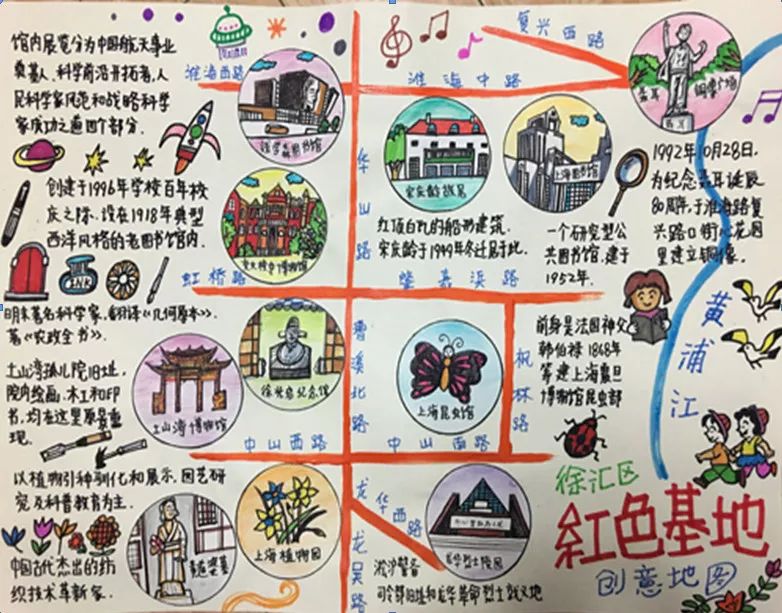 馆内展览分为中国航天事业
奠基人、科学前沿开拓者、人
民科学家风范和战略科学
家成功之道四个部分.
淮海西路
钱学森图书馆
创建于1996年学校百年校
庆之际.设在1918年典型
西洋风格的老图书馆内.
交大校史博物馆
虹桥路
INK
明末著名科学家.翻译《几何原本》.
著《农政全书》.
徐光启纪念馆
土山湾孤儿院旧址,
院内绘画、木工和印
书,均在这里原景重
现.
土山湾博物馆
中山西路
以植物引种驯化和展示、园艺研
究及科普教育为主.
上海植物园
中国古代杰出的纺
织技术革新家.
复兴西路
淮海中路
聂耳
铜像广场
聂耳
1992年10月28日,
为纪念聂耳诞辰
80周年,于淮海路复
兴路口街心花园
里建立铜像.
华山路
宋庆龄故居
红顶白瓦的船形建筑.
宋庆龄于1949年冬迁居于此.
上海图书馆
一个研究型公
共图书馆.建于
1952年.
肇嘉浜路
漕溪北路
上海昆虫馆
中山南路
枫林路
前身是法国神父
韩伯禄1868年
筹建上海震旦
博物馆昆虫部
黄浦江
龙吴路
龙华西路
龙华烈士陵园
淞沪警备
司令部旧址和龙华革命烈士就义地
徐汇区
紅色基地
创意地图